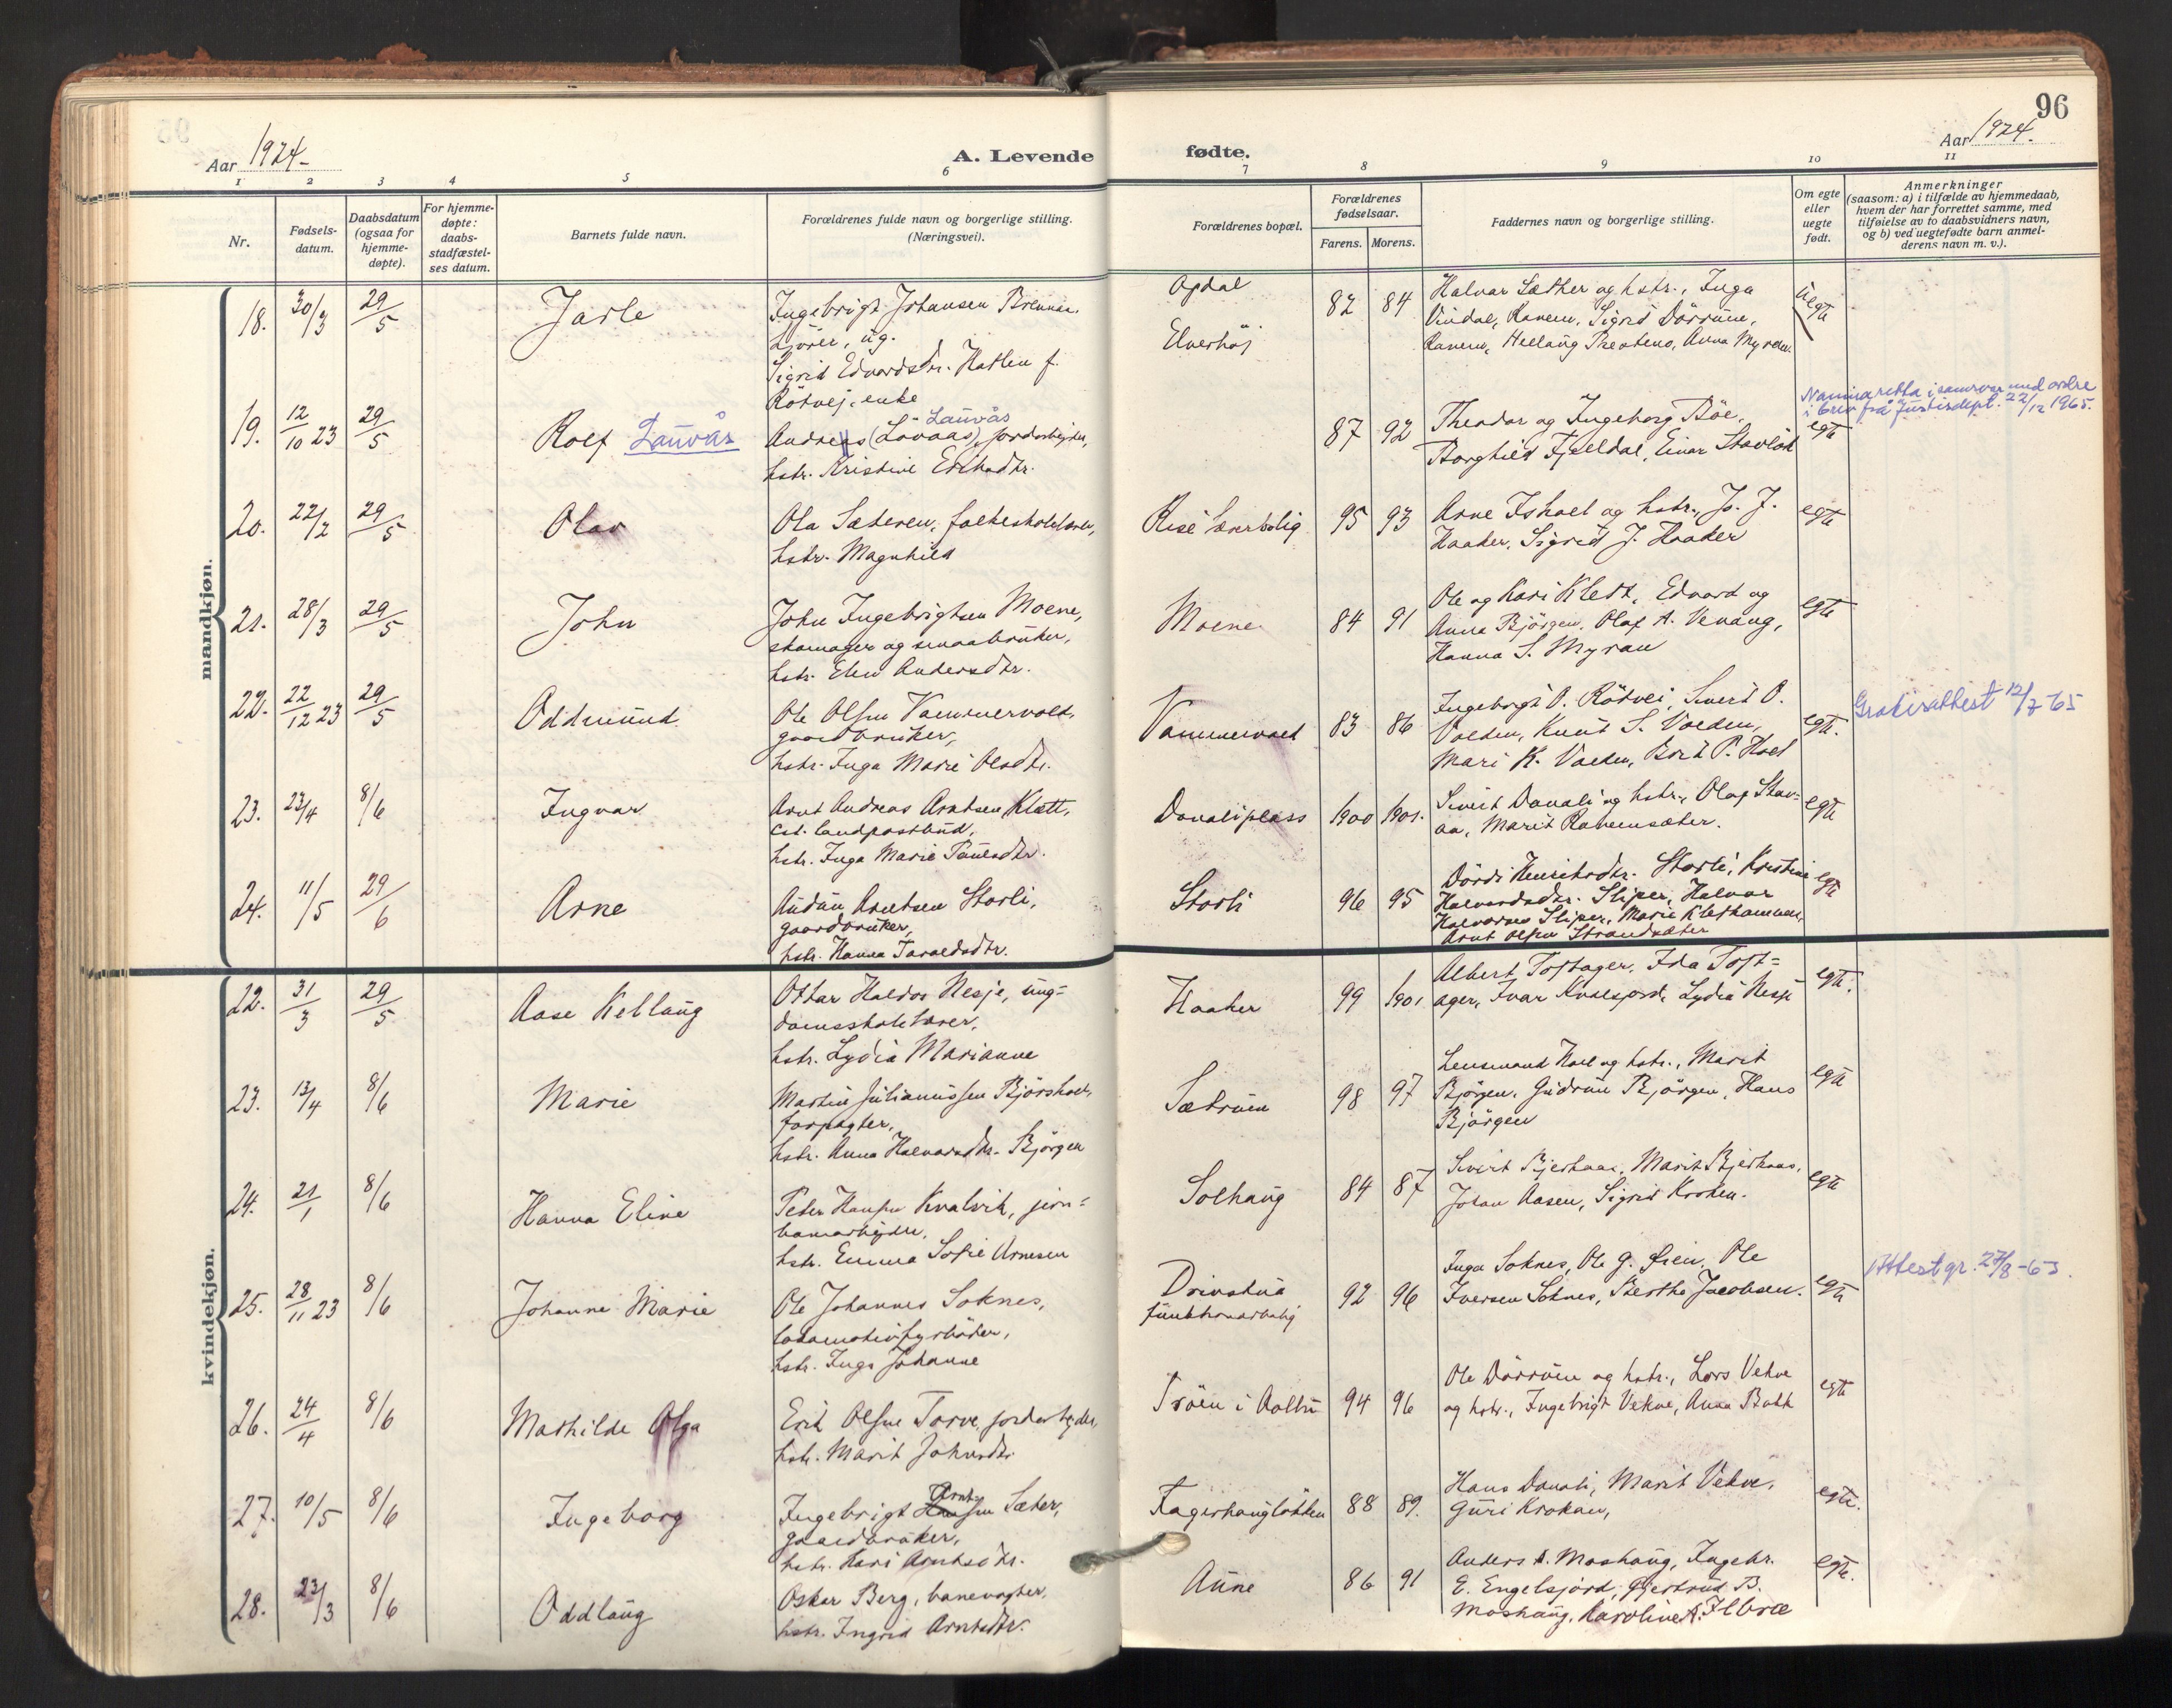 96
Aar 1924.
A. Levende fødte.
Aar 1924.
1 2 3 4 5 6 7 8 9 10 11
Nr.
Fødsels-
datum.
Daabsdatum
(ogsaa for
hjemme-
døpte).
For hjemme-
døpte:
daabs-
stadfæstel-
ses datum.
Barnets fulde navn.
Forældrenes fulde navn og borgerlige stilling.
(Næringsvei).
Forældrenes bopæl.
Forældrenes
fødselsaar.
Farens. Morens.
Faddernes navn og borgerlige stilling.
Om egte
eller
uegte
født.
Anmerkninger
(saasom: a) i tilfælde av hjemmedaab,
hvem der har forrettet samme, med
tilføielse av to daabsvidners navn,
og b) ved uegtefødte barn anmel-
derens navn m. v.).
mandkjøn.
18. 30/3 29/5 Jarle
Ingebrigt Johansen Brennan
ug.
Sigrid Edvardsdtr. Hatlen f.
Rötvej, enke
Opdal
Elverhøj
82 84
Halvar Sæther og hstr., Inga
Vindal, Ranem, Sigrid Dörrum,
Ranem, Anna Myren.
uegte
19. 12/10 23 29/5 Rolf Lauvås
Lauvås
Andreas (Lövaas), jordarbejder,
hstr. Kristine
87 92
Theodor og Ingeborg Böe,
Borghild Fjelldal, Einar
egte
Namna retta i samsvar med ordre
i brev frå Justisdept. 22/12 1965.
20. 22/2 29/5 Olav
Ola Sæteren, folkeskolelærer,
hstr. Magnhild
Rise lærerbolig
95 93
Arne Ishoel og hstr., Jo. J.
Haaker, Sigrid J. Haaker
egte
21. 28/3 29/5 John
John Ingebrigtsen Moene,
skomager og smaabruker,
hstr. Elen Andersdtr.
Moene
84 91
Ole og Kari Klett, Edvard og
Anna Björgen, Olaf A. Venang,
Hanna S. Myran
egte
22. 22/12 23 29/5 Oddmund
Ole Olsen Vammervold,
gaardbruker,
hstr. Inga Marie Olsdtr.
Vammervold
83 86
Ingeborgt O. Rötvei, Sivert O.
Volden, Knut S. Volden,
Mari K. Volden, Berit P. Hoel
egte.
Gratisattest 12/7 65
23. 23/4 8/6 Ingvar
Arnt Andreas Arntsen Klett,
cst. landpostbud,
hstr. Inga Marie Paulsdtr.
Donaliplass
1900 1901.
Sivert Donali og hstr., Olaf Stav-
aa, Marit Ranemsæter.
egte
24. 11/5 29/6 Arne
Audun Arntsen Storli,
gaardbruker,
hstr. Hanna Taraldsdtr.
Storli
96 95
Dordi Henriksdtr. Storli, Kristine
Halvordsdtr. Sliper, Halvor
Halvorsen Sliper, Marie Klefhammer,
Arnt Olsen Strandsæter
egte
kvindekjøn.
22. 31/3 29/5 Aase Kellaug
Ottar Haldor Nesje, ung-
domsskolelærer,
hstr. Lydia Marianne
Haaker
99 1901
Albert Toftager, Ida Toft-
ager, Ivar Kvalsjord, Lydia Nesje
egte.
23. 13/4 8/6 Marie
Martin Julianussen Bjørshol,
forpagter,
hstr. Anna Halvorsdtr. Björgen
Sætrum
98 97
Lensmand Hoel og hstr., Marit
Björgen, Gudrun Björgen, Hans
Björgen
egte
24. 21/1 8/6 Hanna Eline
Peder Hansen Kvalvik, jern-
banearbejder,
hstr. Emma Sofie Arnesen
Solhaug
84 87
Sivert Bjerkaas, Marit Bjerkaas,
Johan Aasen, Sigrid Kroken.
egte
25. 28/11 23 8/6 Johanne Marie
Ole Johannes Soknes,
lokomotivfyrbøder,
hstr. Inga Johanne
Drivstua
funktionærbolig
92 96
Inga Soknes, Ole G. Øien, Ole
Iversen Soknes, Bertha Jacobsen.
egte
Attest gr. 27/8-63.
26. 24/4 8/6 Mathilde Olga
Erik Olsen Torve, jordarbejder,
hstr. Marit Johnsdtr.
Trøen i Aalbu
94 96
Ole Dörrum og hstr., Lars Vekve
og hstr., Ingebrigt Vekve, Anna Bakk
egte
27. 10/5 8/6 Ingeborg
Arnt-
Ingebrigt Hansen Sæter,
gaardbruker,
hstr. Kari Arntsdtr.
Fagerhaugløkken
88 89.
Hans Donali, Marit Vekve,
Guri Krokan,
egte.
28. 23/3 8/6 Oddlaug
Oskar Berg, banevogter,
hstr. Ingrid Arntsdtr.
Aune
86 91
Anders A. Moshaug, Ingebr.
E. Engelsjord, Gjertrud B.
Moshaug, Karoline A. Ilbræ
egte.